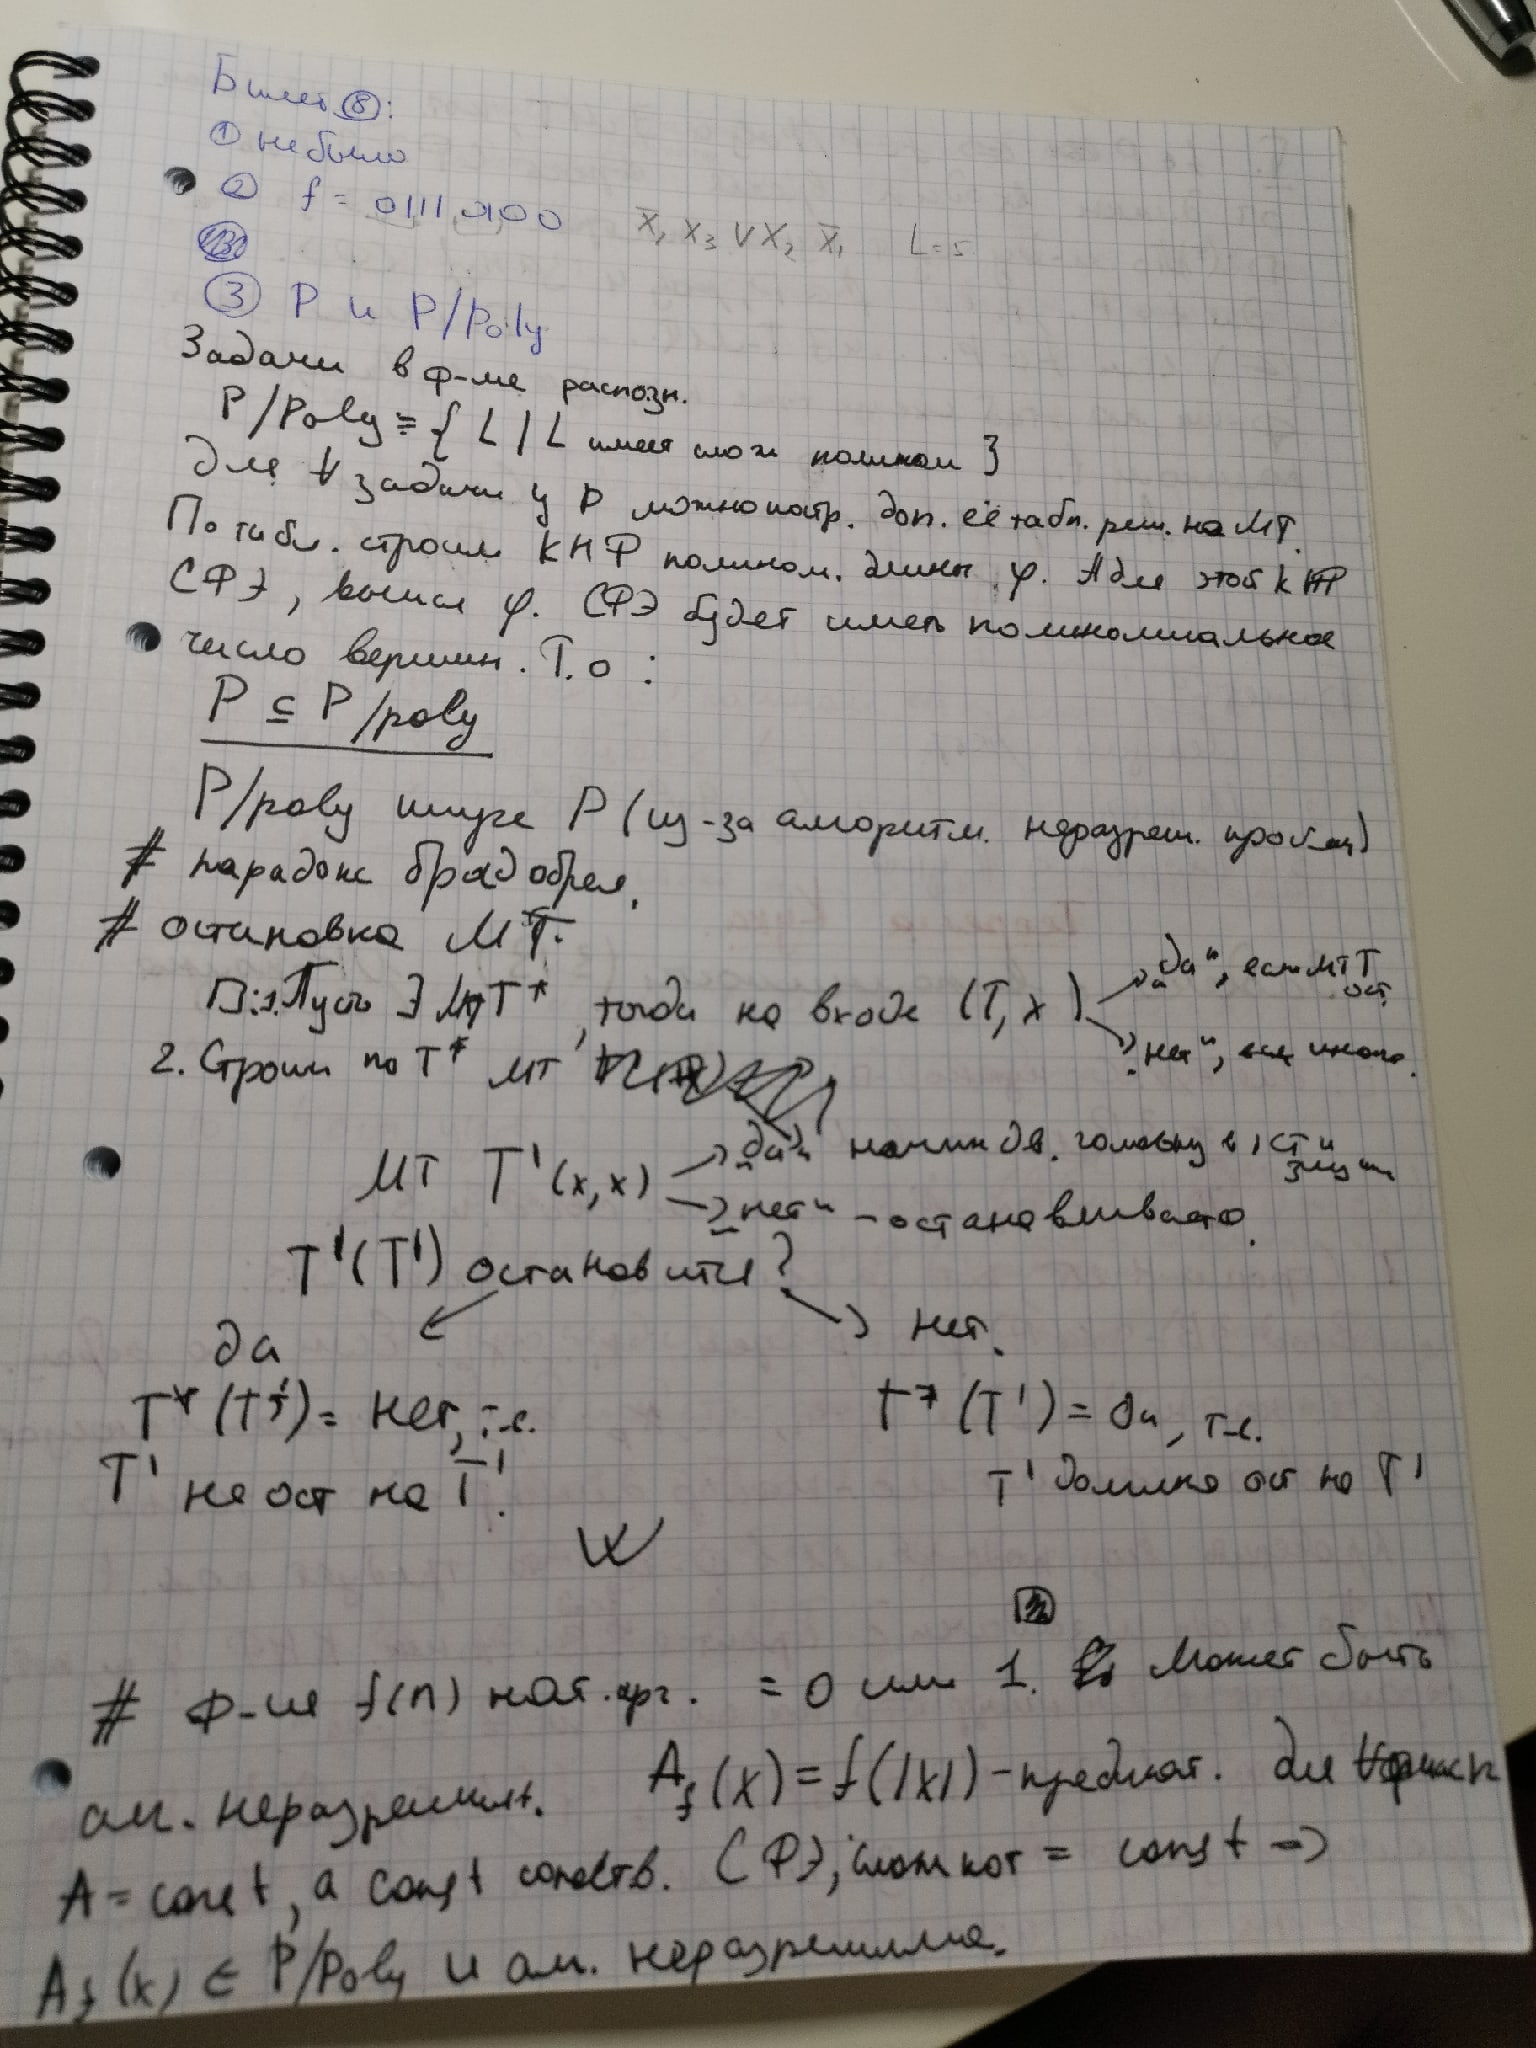 Билет ⑧:
① не было
② f = 01110100 x̄₁ x₃ ∨ x₂ x̄₁ L=5
③ P и P/Poly
Задачи в ф-ме распозн.
P/Poly = { L | L имеет слож полином }
Для ∀ задачи из P можно постр. доп. её табл. реш. на МТ.
По табл. строим КНФ полином. длины φ. А для этой КНФ
СФЭ, вычисл φ. СФЭ будет иметь полиномиальное
число вершин. Т.о :
P ⊆ P/poly
P/poly шире P (из-за алгоритм. неразреш. проблем)
# парадокс брадобрея.
# остановка МТ.
1. Пусть ∃ МТ T*, тогда на входе (T, x)
"да", если МТ T ост.
"нет", если иначе.
2. Строим по T* МТ
МТ T'(x,x) "да" начин дв. головку в 1 ст и
"нет" – останавливается.
T'(T') остановится?
да нет.
T*(T') = нет, т.е. T*(T') = да, т.е.
T' не ост на T'. T' должна ост на T'
# Ф-ия f(n) нат. арг. = 0 или 1. Может быть
ал. неразрешимт. A_f(x) = f(|x|) – предикат. Для ∀ n
A = const, а const соответств. СФЭ, сложност = const →
A_f(x) ∈ P/Poly и ал. неразрешима.